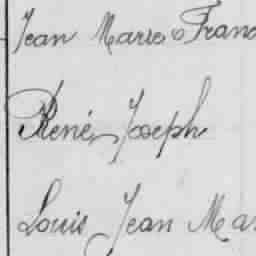 Jean Marie Franc
René Joseph
Louis Jean Mar